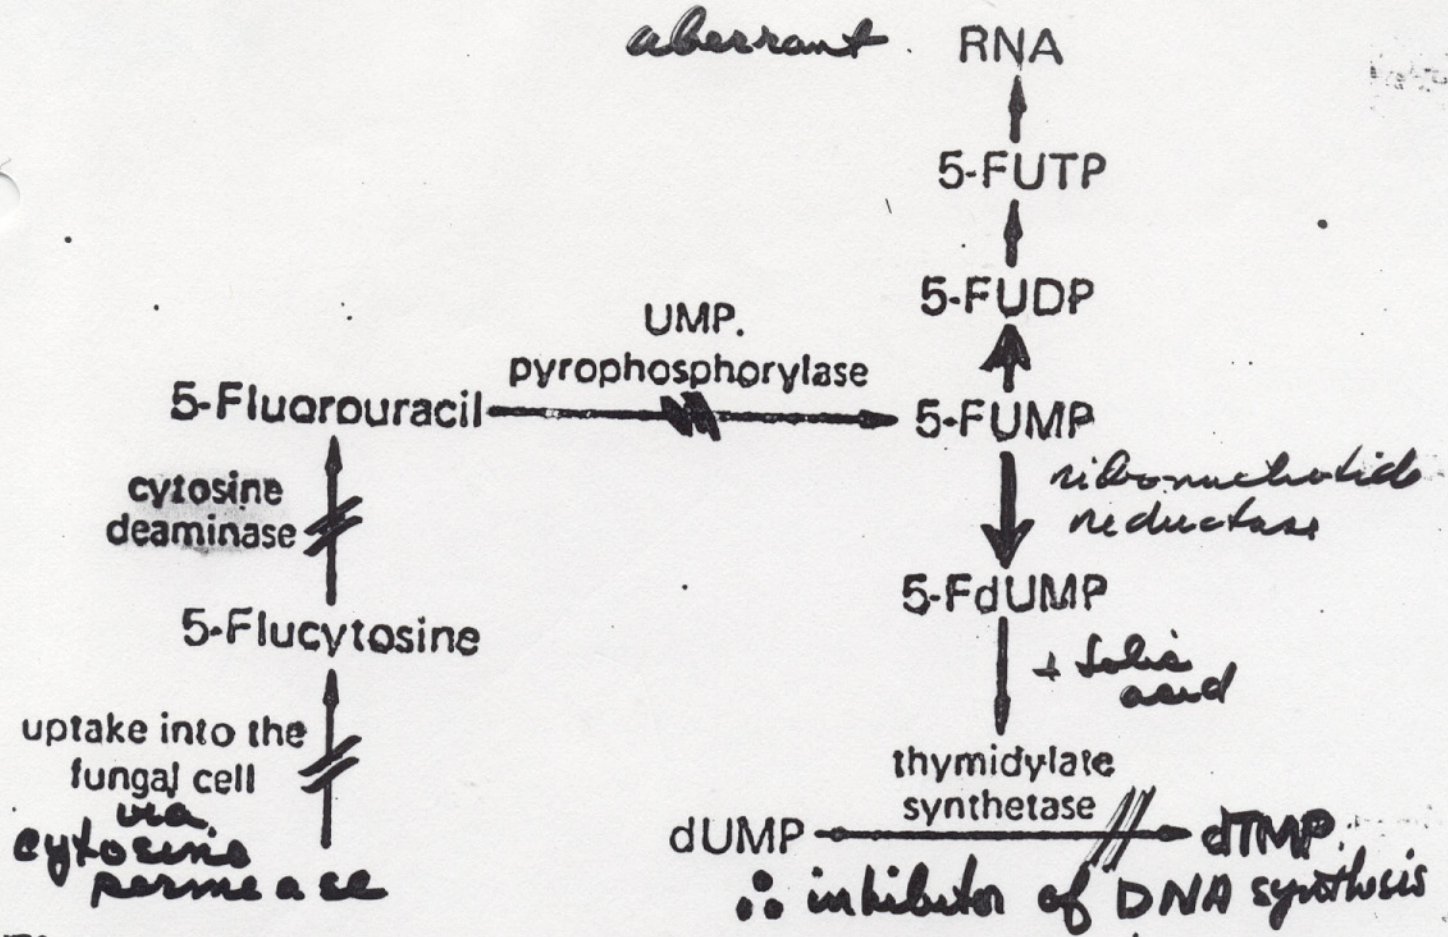 aberrant RNA
5-FUTP
5-FUDP
UMP.
pyrophosphorylase
5-Fluorouracil
5-FUMP
cytosine
deaminase
ribonucleotide
reductase
5-FdUMP
5-Flucytosine
+ folic
acid
uptake into the
fungal cell
via
cytosine
permease
thymidylate
synthetase
dUMP
dTMP
∴ inhibitor of DNA synthesis